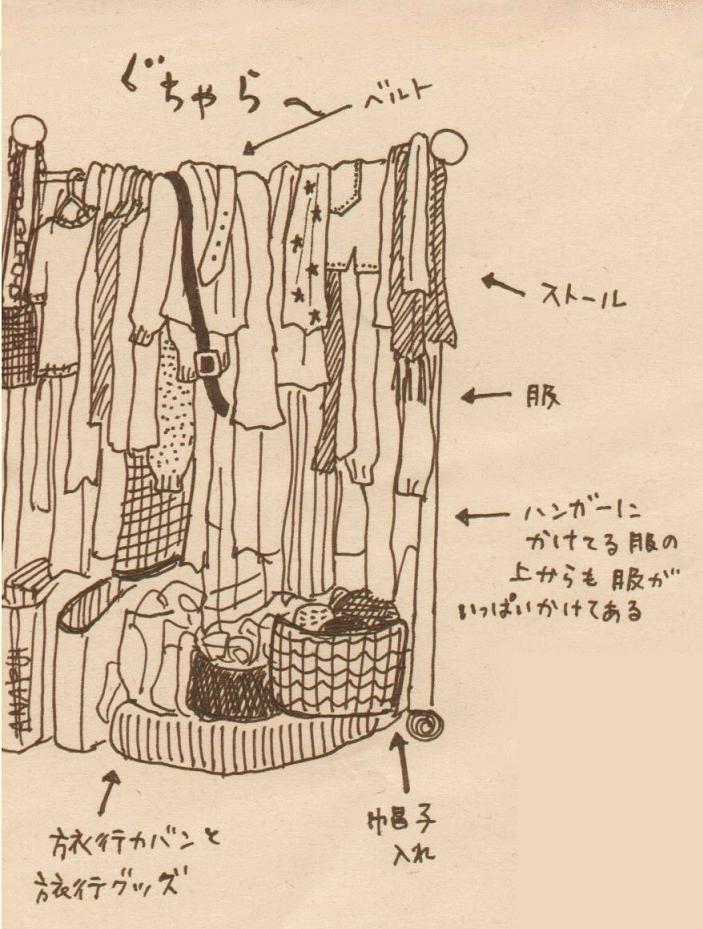 ぐちゃら〜
ベルト
ストール
服
ハンガーに
かけてる服の
上からも服が
いっぱいかけてある
帽子
入れ
旅行カバンと
旅行グッズ